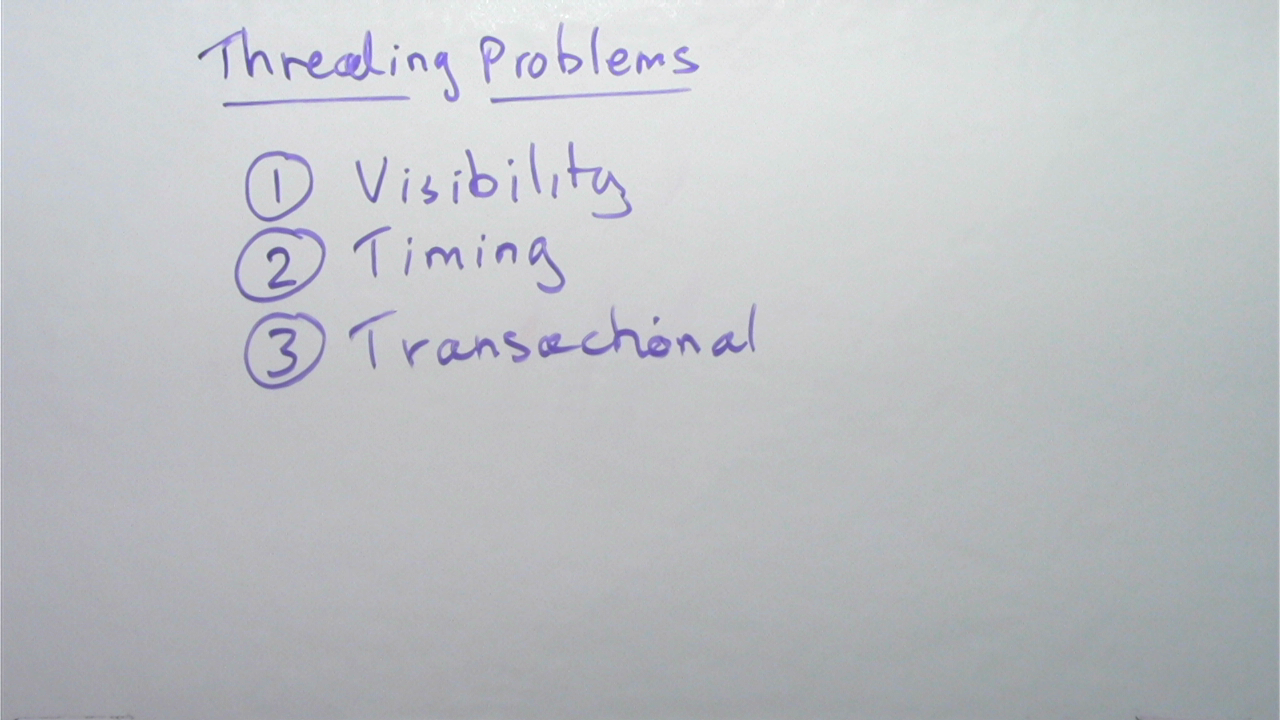 Threading Problems
① Visibility
② Timing
③ Transactional